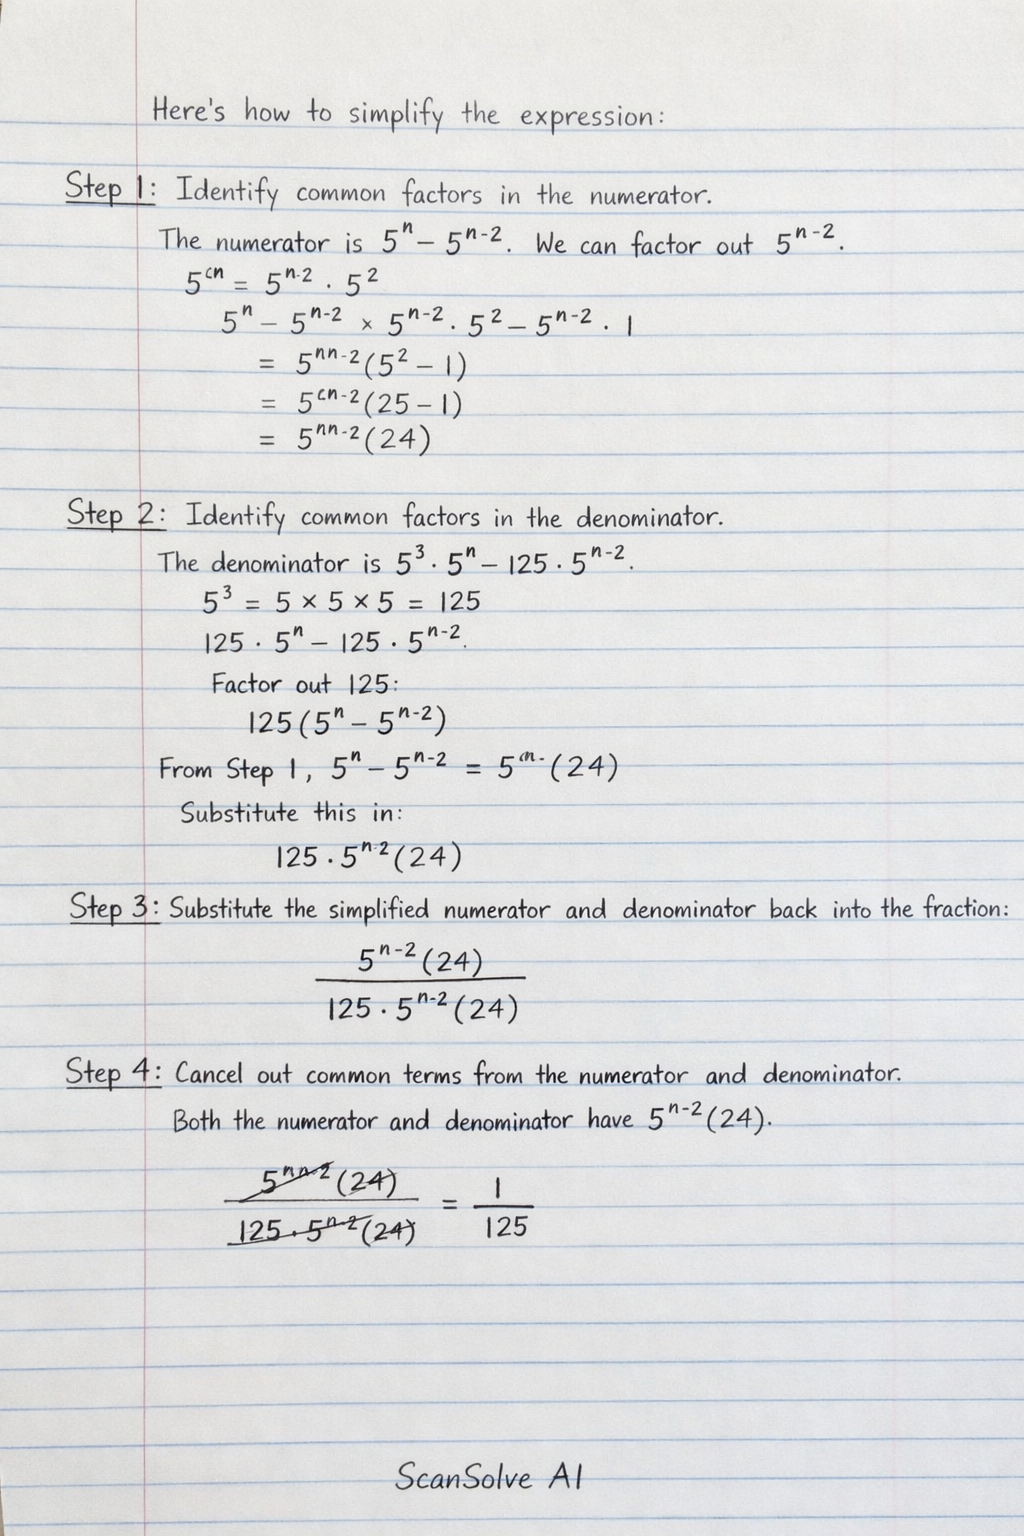 Here's how to simplify the expression:
Step 1: Identify common factors in the numerator.
The numerator is 5ⁿ − 5ⁿ⁻². We can factor out 5ⁿ⁻².
5ᶜⁿ = 5ⁿ⁻² · 5²
5ⁿ − 5ⁿ⁻² × 5ⁿ⁻² · 5² − 5ⁿ⁻² · 1
= 5ⁿⁿ⁻²(5² − 1)
= 5ᶜⁿ⁻²(25 − 1)
= 5ⁿⁿ⁻²(24)
Step 2: Identify common factors in the denominator.
The denominator is 5³ · 5ⁿ − 125 · 5ⁿ⁻².
5³ = 5 × 5 × 5 = 125
125 · 5ⁿ − 125 · 5ⁿ⁻².
Factor out 125:
125(5ⁿ − 5ⁿ⁻²)
From Step 1, 5ⁿ − 5ⁿ⁻² = (24)
Substitute this in:
125 · 5ⁿ⁻²(24)
Step 3: Substitute the simplified numerator and denominator back into the fraction:
5ⁿ⁻²(24)
125 · 5ⁿ⁻²(24)
Step 4: Cancel out common terms from the numerator and denominator.
Both the numerator and denominator have 5ⁿ⁻²(24).
5ⁿⁿ⁻²(24) = 1
125 · 5ⁿ⁻²(24) 125
ScanSolve AI